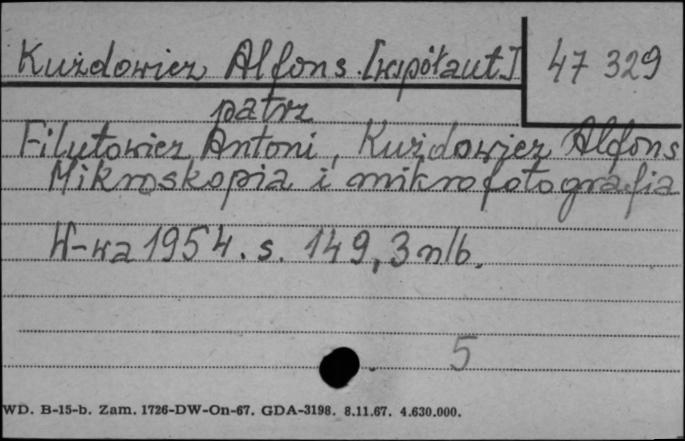 Kużdowicz Alfons [współaut.] 47 329
patrz
Filutowicz Antoni, Kużdowicz Alofons
Mikroskopia i mikrofotografia
W-wa 1954. s. 149, 3 nlb.
5
WD. B-15-b. Zam. 1726-DW-On-67. GDA-3198. 8.11.67. 4.630.000.